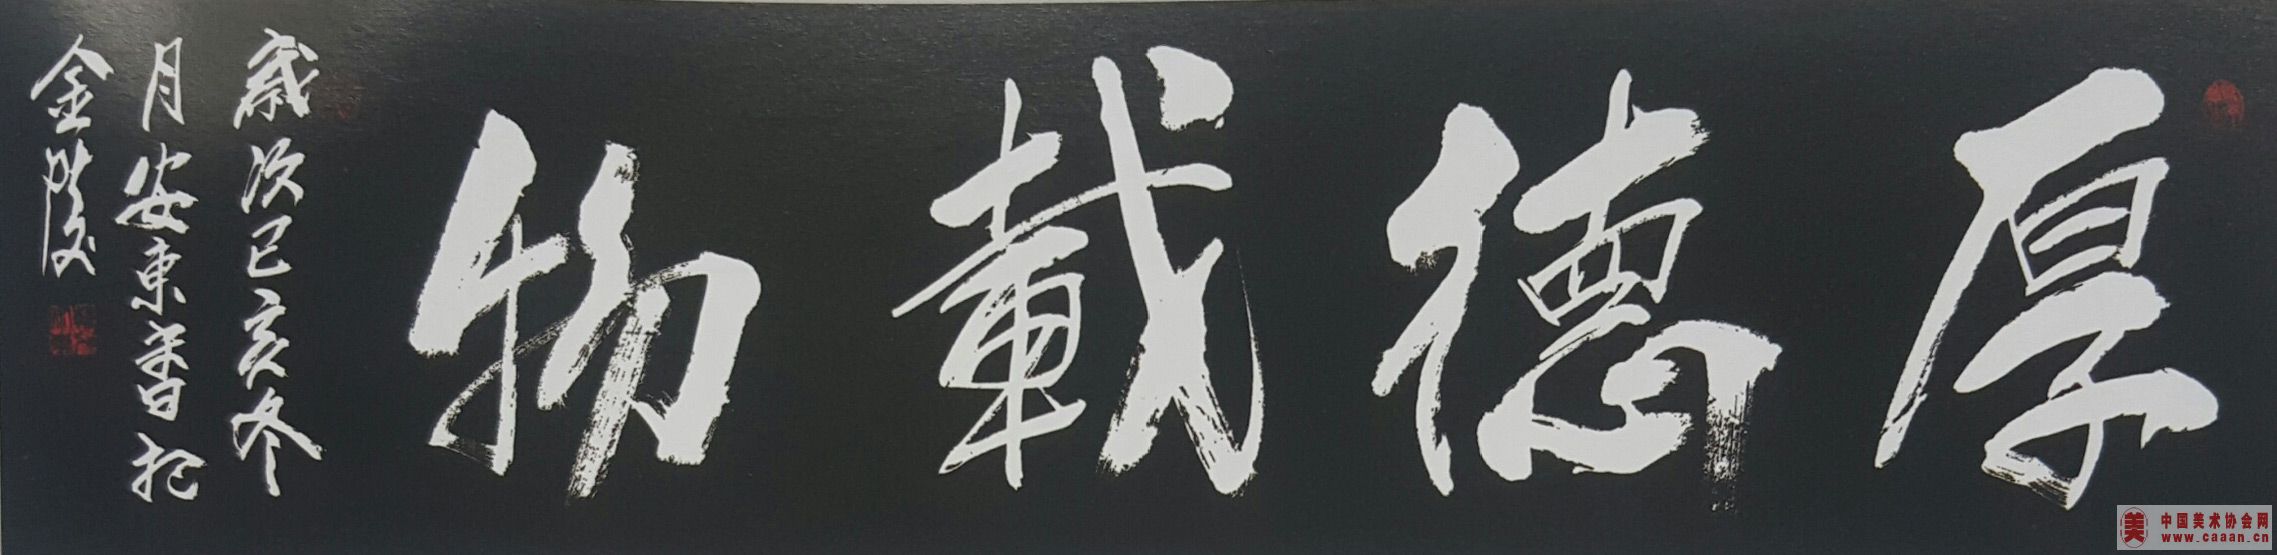 厚德载物
歲次己亥冬
月安東書於
金陵
中国美术协会网
www.caaan.cn